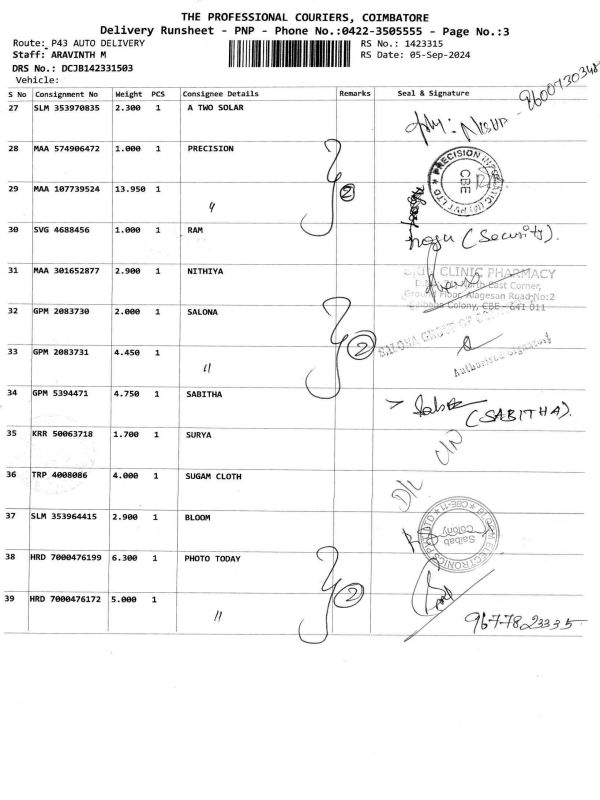 THE PROFESSIONAL COURIERS, COIMBATORE
Delivery Runsheet - PNP - Phone No.:0422-3505555 - Page No.:3
Route: P43 AUTO DELIVERY RS No.: 1423315
Staff: ARAVINTH M RS Date: 05-Sep-2024
DRS No.: DCJB142331503
Vehicle:
S No Consignment No Weight PCS Consignee Details Remarks Seal & Signature
27 SLM 353970835 2.300 1 A TWO SOLAR
28 MAA 574906472 1.000 1 PRECISION 2 PRECISION INFORMATIC (M) PVT LTD CBE
29 MAA 107739524 13.950 1 "
30 SVG 4688456 1.000 1 RAM (Security).
31 MAA 301652877 2.900 1 NITHIYA
CLINIC PHARMACY
East Corner,
Ground Floor, Alagesan Road No:2
Colony, CBE - 641 011
32 GPM 2083730 2.000 1 SALONA 2 SALONA GROUP OF
33 GPM 2083731 4.450 1 " Authorised Signatory
34 GPM 5394471 4.750 1 SABITHA (SABITHA).
35 KRR 50063718 1.700 1 SURYA C/N
36 TRP 4008086 4.000 1 SUGAM CLOTH D/L
37 SLM 353964415 2.900 1 BLOOM BLOOM ELECTRONICS PVT LTD CBE-11 Saibab Colony
38 HRD 7000476199 6.300 1 PHOTO TODAY 2
39 HRD 7000476172 5.000 1 " 9677823335